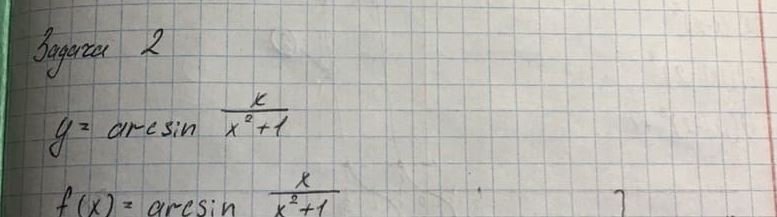 Задача 2
y = arcsin x/(x²+1)
f(x) = arcsin x/(x²+1)